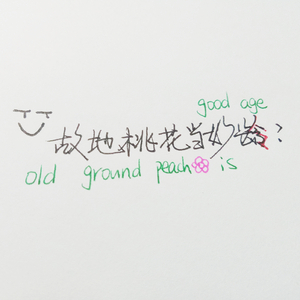 good age
故地桃花当妙龄?
old ground peach is